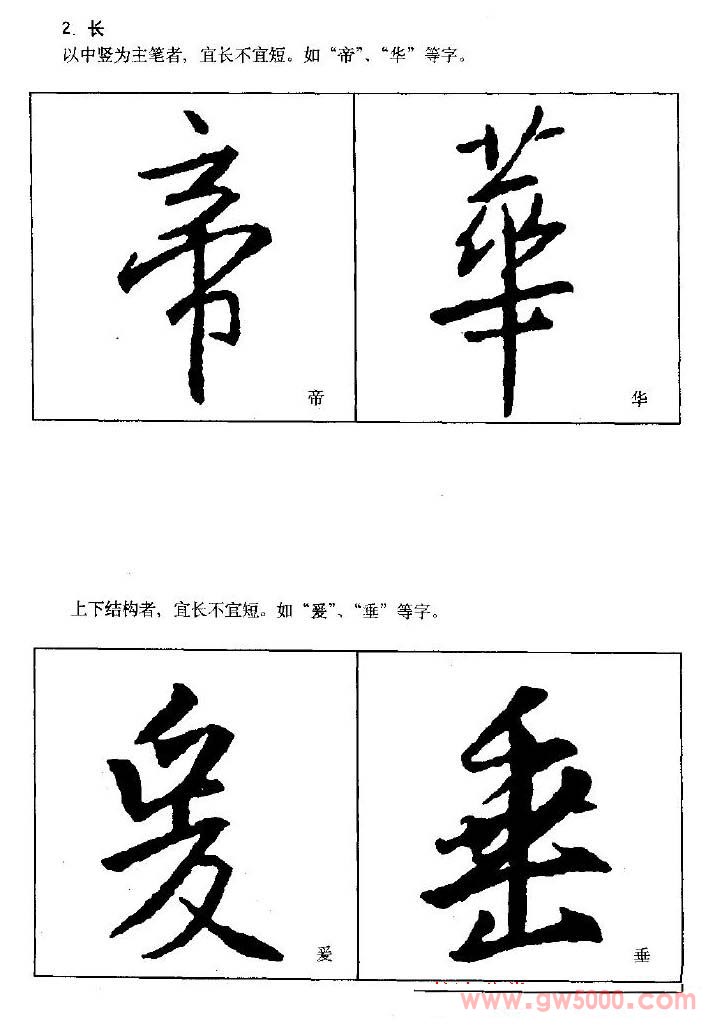 2. 长
以中竖为主笔者，宜长不宜短。如“帝”、“华”等字。
帝 華
帝 华
上下结构者，宜长不宜短。如“爰”、“垂”等字。
爰 垂
爰 垂
www.gw5000.com